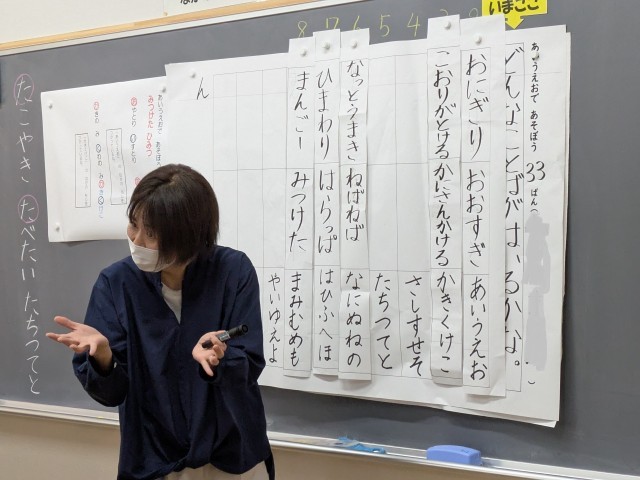 いまここ
8 7 6 5 4 3 2
あいうえおで あそぼう 33ばん（
どんなことばがはいるかな。
おにぎり おおすぎ あいうえお
こおりがとける かにさんかける かきくけこ
さしすせそ
たちつてと
なっとうまき ねばねば なにぬねの
ひまわり はらっぱ はひふへほ
まんごー みつけた まみむめも
やいゆえよ
ん
あいうえおで あそぼう
みつけた ひみつ
たこやき たべたい たちつてと